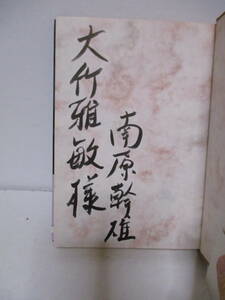 大竹雅敏様
南原幹雄